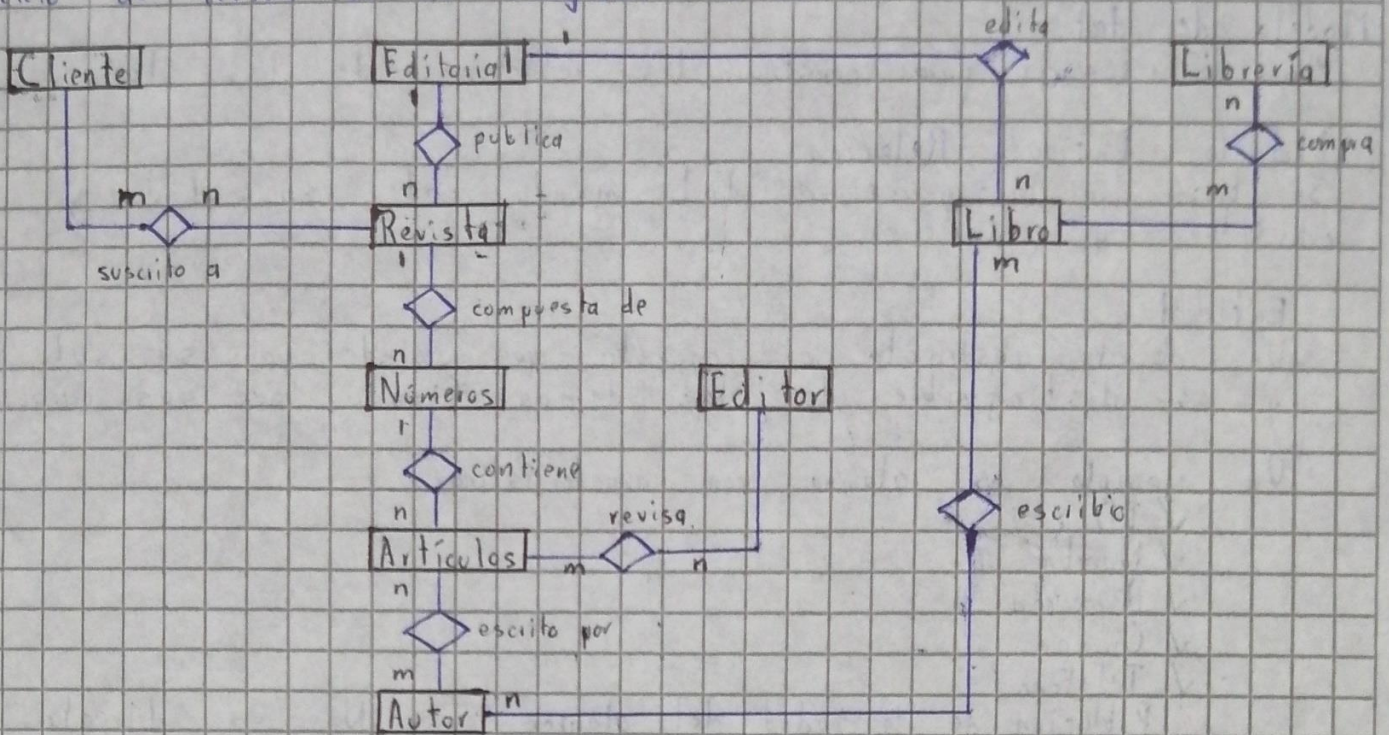 edita
Cliente Editorial 1 Librería
1 n
publica compra
m n n n m
Revista Libro
suscrito a 1 m
compuesta de
n
Números Editor
1
contiene
n revisa escribio
Artículos m n
n
escrito por
m
Autor n